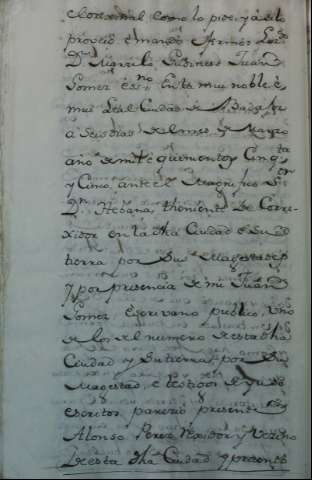 el original como lo pide, y asilo
proveio, e mando. Firmolo Ldo
D. Juan
Gomez esno En la mui noble, e
mui Leal Ciudad de
a Seis dias del mes de Marzo
año de mil e quinientos y Cinqta
y Cinco, ante el Magnifico Sor
Dn theniente de Corre-
xidor en la dha Ciudad e su
tierra por Su Magestad
y por presencia de mi Juan
Gomez, Escrivano publico, uno
de los del numero de esta dha
Ciudad y Su tierra, por Su
Magestad, e testigos de yuso
escritos parecio presente
Alonso Perez Rexidor y Vecino
de esta dha Ciudad y presento